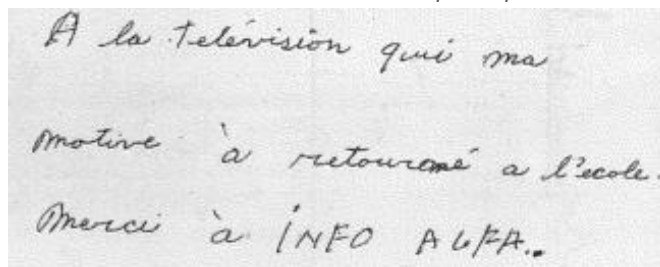 A la Télévision qui ma
motive à retourné a l'ecole.
Merci à INFO ALFA..